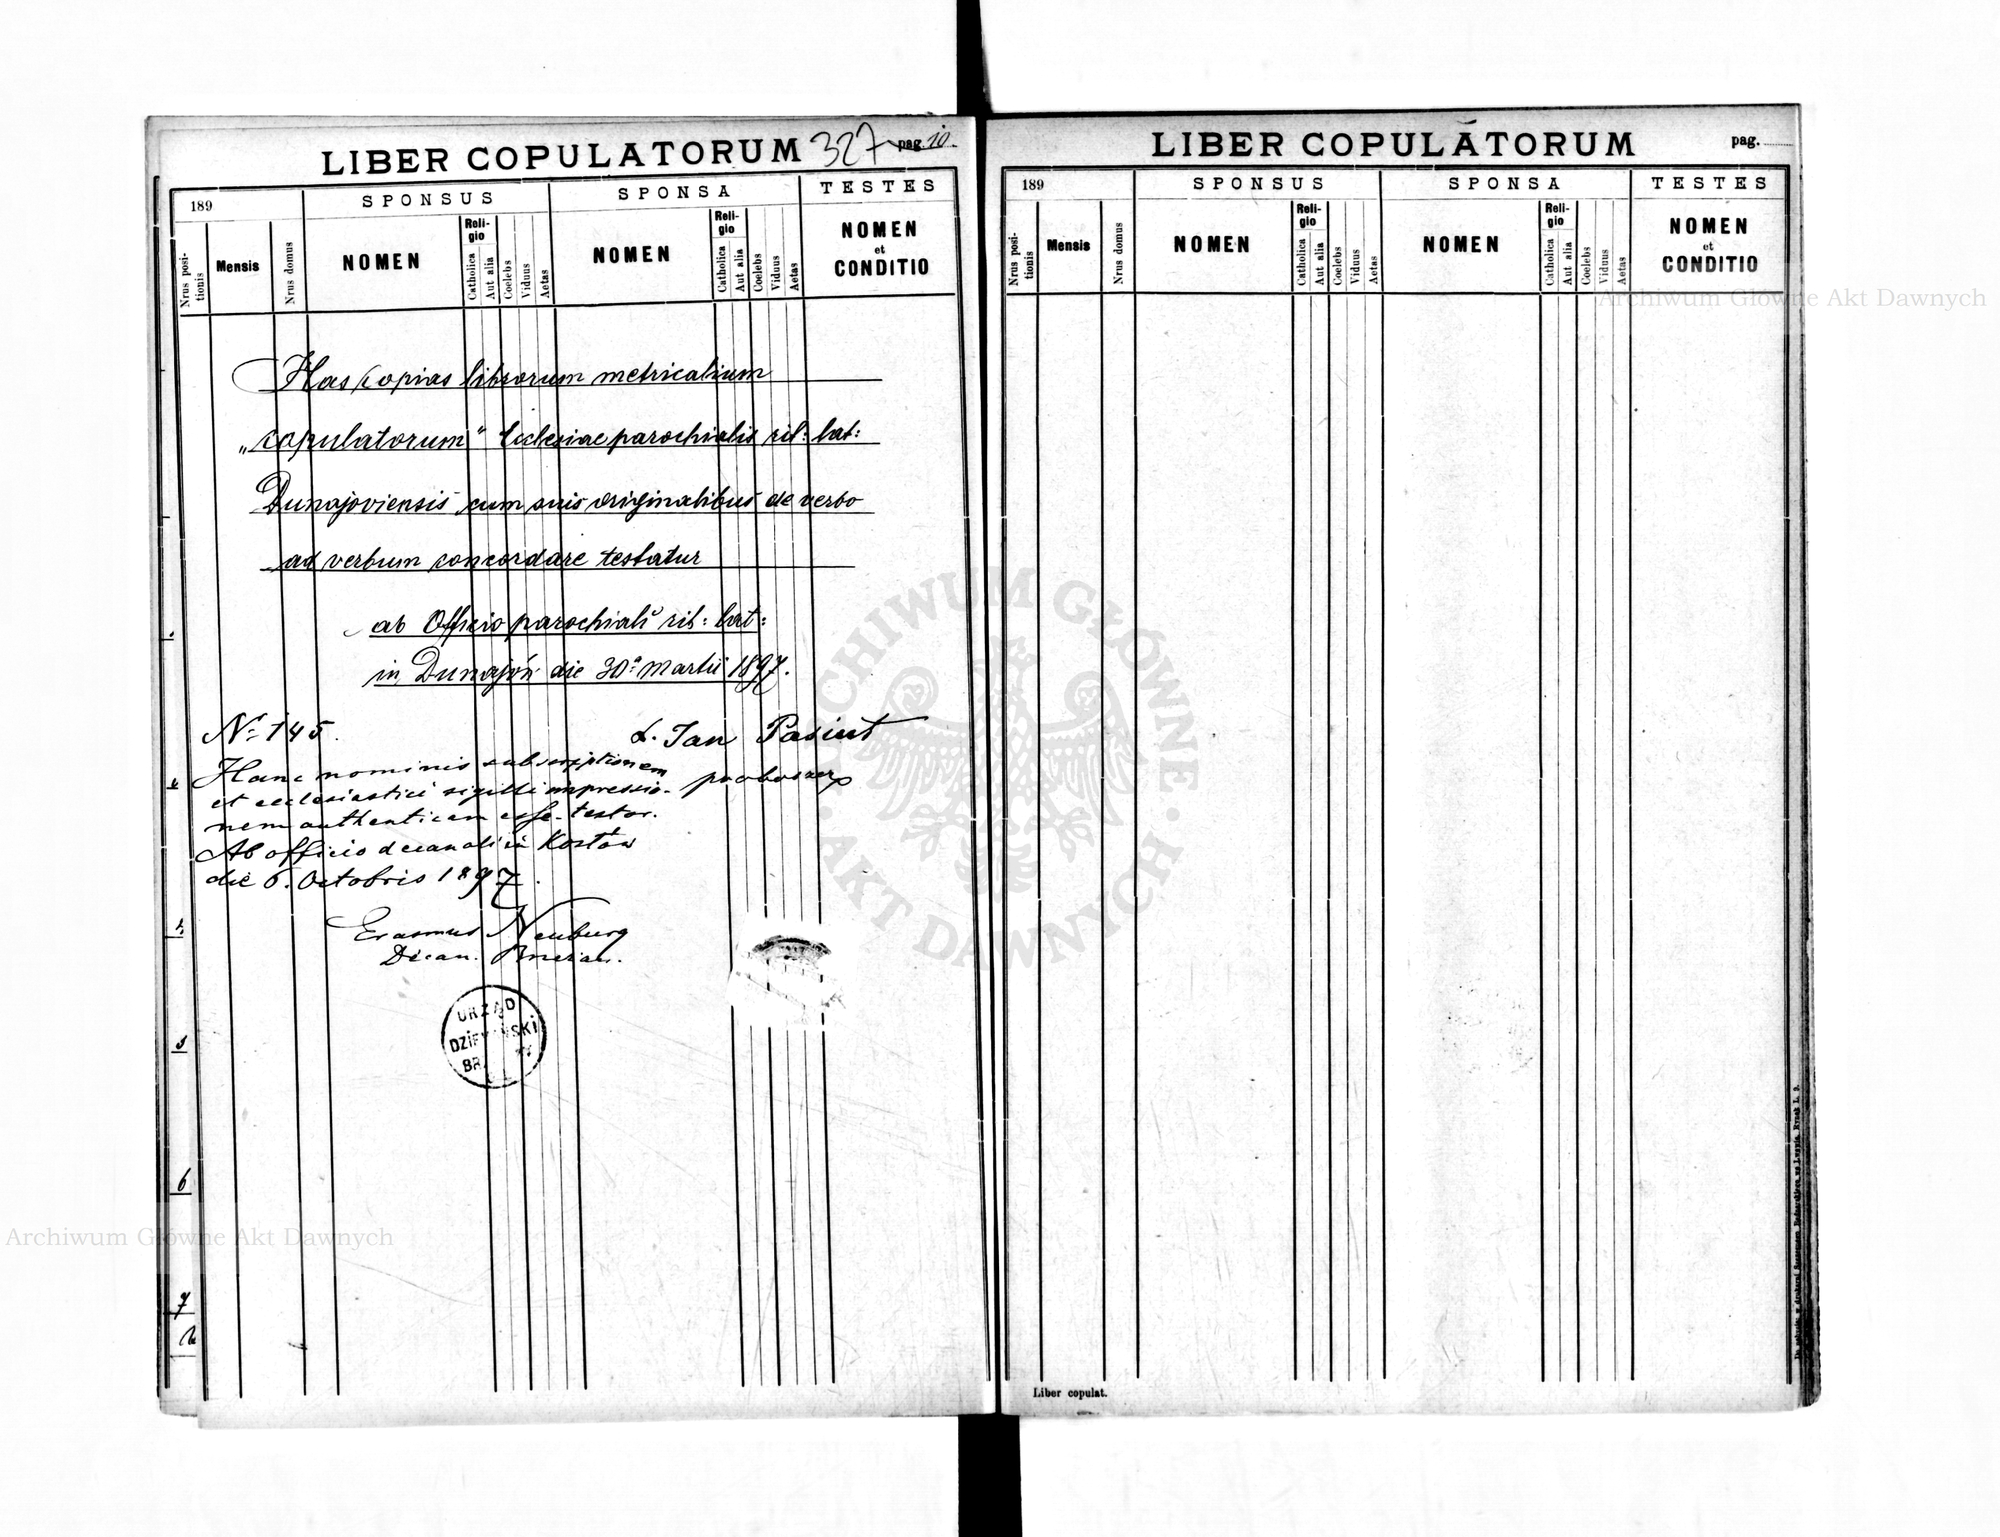 LIBER COPULATORUM 327 pag. 10.
189
SPONSUS
SPONSA
TESTES
Nrus positionis
Mensis
Nrus domus
NOMEN
Religio
Catholica
Aut alia
Coelebs
Viduus
Aetas
NOMEN
Religio
Catholica
Aut alia
Coelebs
Viduus
Aetas
NOMEN
et
CONDITIO
Has copias librorum metricalium
„copulatorum" Ecclesiae parochialis rit: lat:
Dunajoviensis cum suis originalibus de verbo
ad verbum concordare testatur
ab Officio parochiali rit: lat:
in Dunajów die 30a Martii 1897.
N: 145.
X. Jan Pasiut
proboszcz
Hanc nominis subscriptionem
et ecclesiastici sigilli impressio-
nem authenticam esse testor.
Ab officio decanali in
die 6. Octobris 1897.
Erasmus Neuburg
Decan.
URZĄD
DZIEKAŃSKI
6
7
LIBER COPULATORUM pag.
189
SPONSUS
SPONSA
TESTES
Nrus positionis
Mensis
Nrus domus
NOMEN
Religio
Catholica
Aut alia
Coelebs
Viduus
Aetas
NOMEN
Religio
Catholica
Aut alia
Coelebs
Viduus
Aetas
NOMEN
et
CONDITIO
Liber copulat.
Archiwum Główne Akt Dawnych
Archiwum Główne Akt Dawnych
ARCHIWUM GŁÓWNE
AKT DAWNYCH